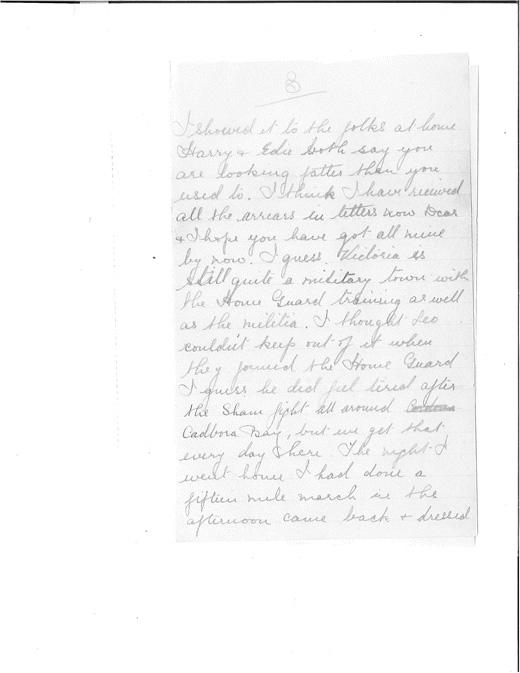 8
I showed it to the folks at home
Harry & Edie both say you
are looking fatter than you
used to. I think I have received
all the arrears in letters now Dear
& I hope you have got all mine
by now. I guess Victoria is
still quite a military town with
the Home Guard training as well
as the militia. I thought Leo
couldn't keep out of it when
they formed the Home Guard
I guess he did feel tired after
the Sham fight all around
Cadbora Bay, but we get that
every day here. The night I
went home I had done a
fifteen mile march in the
afternoon came back & dressed